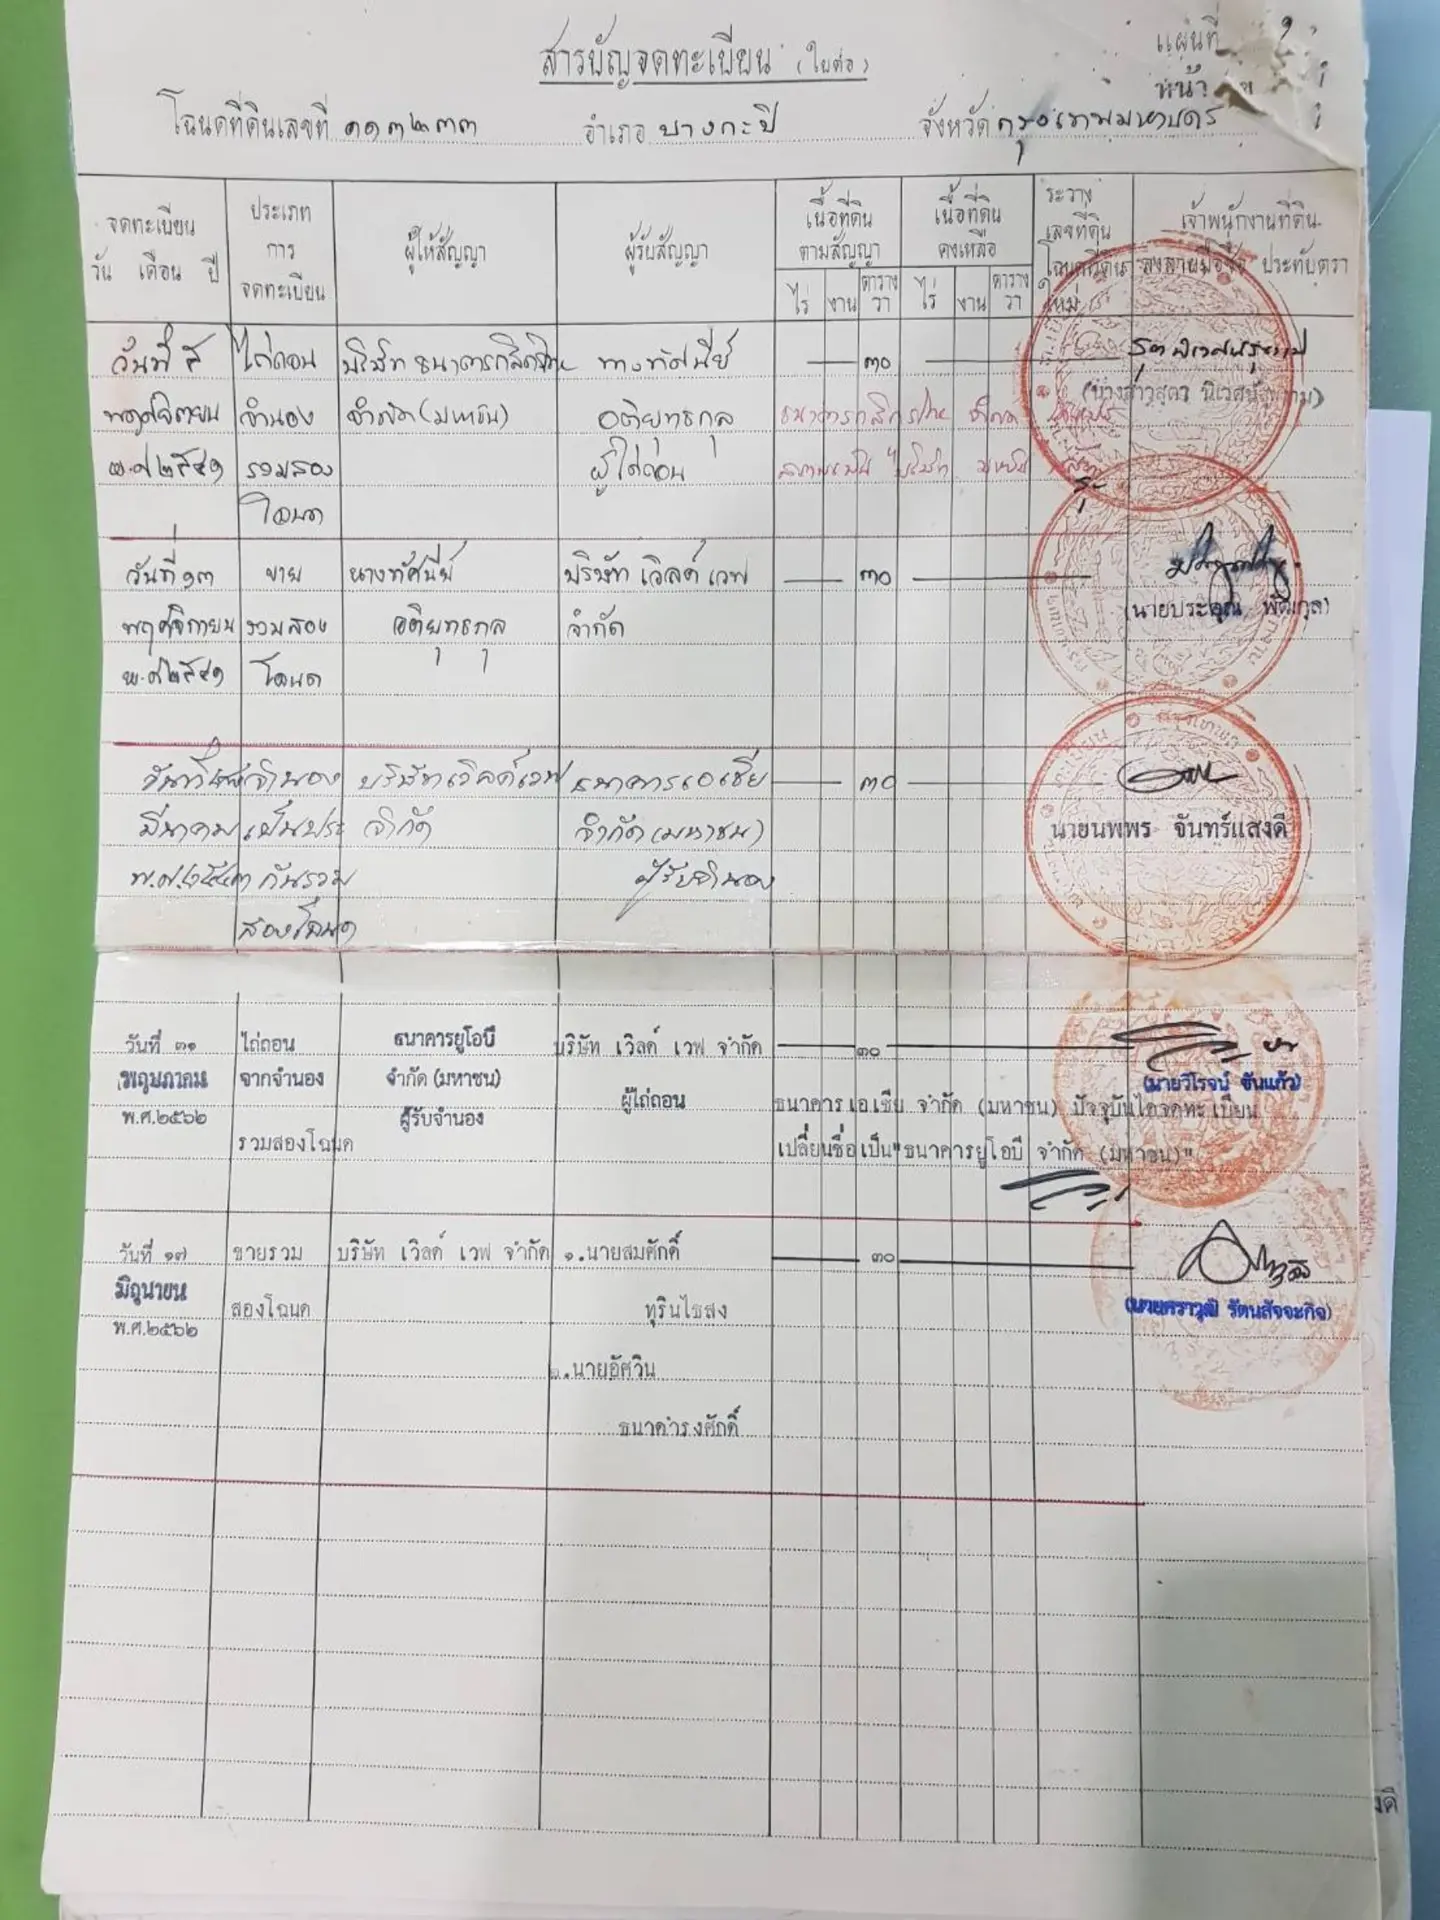 สารบัญจดทะเบียน (ใบต่อ)
แผ่นที่ 2
หน้า
โฉนดที่ดินเลขที่ ๑๑๓๒๓๓ อำเภอ บางกะปิ จังหวัด กรุงเทพมหานคร
จดทะเบียน วัน เดือน ปี
ประเภท การ จดทะเบียน
ผู้ให้สัญญา
ผู้รับสัญญา
เนื้อที่ดิน ตามสัญญา
ไร่ งาน ตารางวา
เนื้อที่ดิน คงเหลือ
ไร่ งาน ตารางวา
ระวาง เลขที่ดิน โฉนดที่ดิน ใหม่
เจ้าพนักงานที่ดิน ลงลายมือชื่อ ประทับตรา
วันที่ ๕ ไถ่ถอน บริษัท ธนาคารกสิกรไทย นางทัศนีย์ ๓๐
พฤศจิกายน จำนอง จำกัด (มหาชน) อติยุทธกุล ธนาคารกสิกรไทย จำกัด
พ.ศ ๒๕๔๑ รวมสอง ผู้ไถ่ถอน
โฉนด
วันที่ ๑๓ ขาย นางทัศนีย์ บริษัท เวิลด์ เวฟ ๓๐
(นายประคุณ พัฒกุล)
พฤศจิกายน รวมสอง อติยุทธกุล จำกัด
พ.ศ ๒๕๔๑ โฉนด
จำนอง บริษัทเวิลด์เวฟ ธนาคารเอเชีย ๓๐
มีนาคม เป็นประ จำกัด จำกัด (มหาชน) นายนพพร จันทร์แสงดี
พ.ศ.๒๕๔๓ กันรวม ผู้รับจำนอง
สองโฉนด
วันที่ ๓๑ ไถ่ถอน ธนาคารยูโอบี บริษัท เวิลด์ เวฟ จำกัด ๓๐
พฤษภาคม จากจำนอง จำกัด (มหาชน) ผู้ไถ่ถอน (นายวิโรจน์ ขันแก้ว)
พ.ศ.๒๕๖๒ ผู้รับจำนอง ธนาคารเอเชีย จำกัด (มหาชน) ปัจจุบันได้จดทะเบียน
รวมสองโฉนด เปลี่ยนชื่อเป็น"ธนาคารยูโอบี จำกัด (มหาชน)"
วันที่ ๑๗ ขายรวม บริษัท เวิลด์ เวฟ จำกัด ๑.นายสมศักดิ์ ๓๐
มิถุนายน สองโฉนด ทุรินไธสง (นายศราวุฒิ รัตนสัจจะกิจ)
พ.ศ.๒๕๖๒
๒.นายอัศวิน
ธนาดำรงศักดิ์